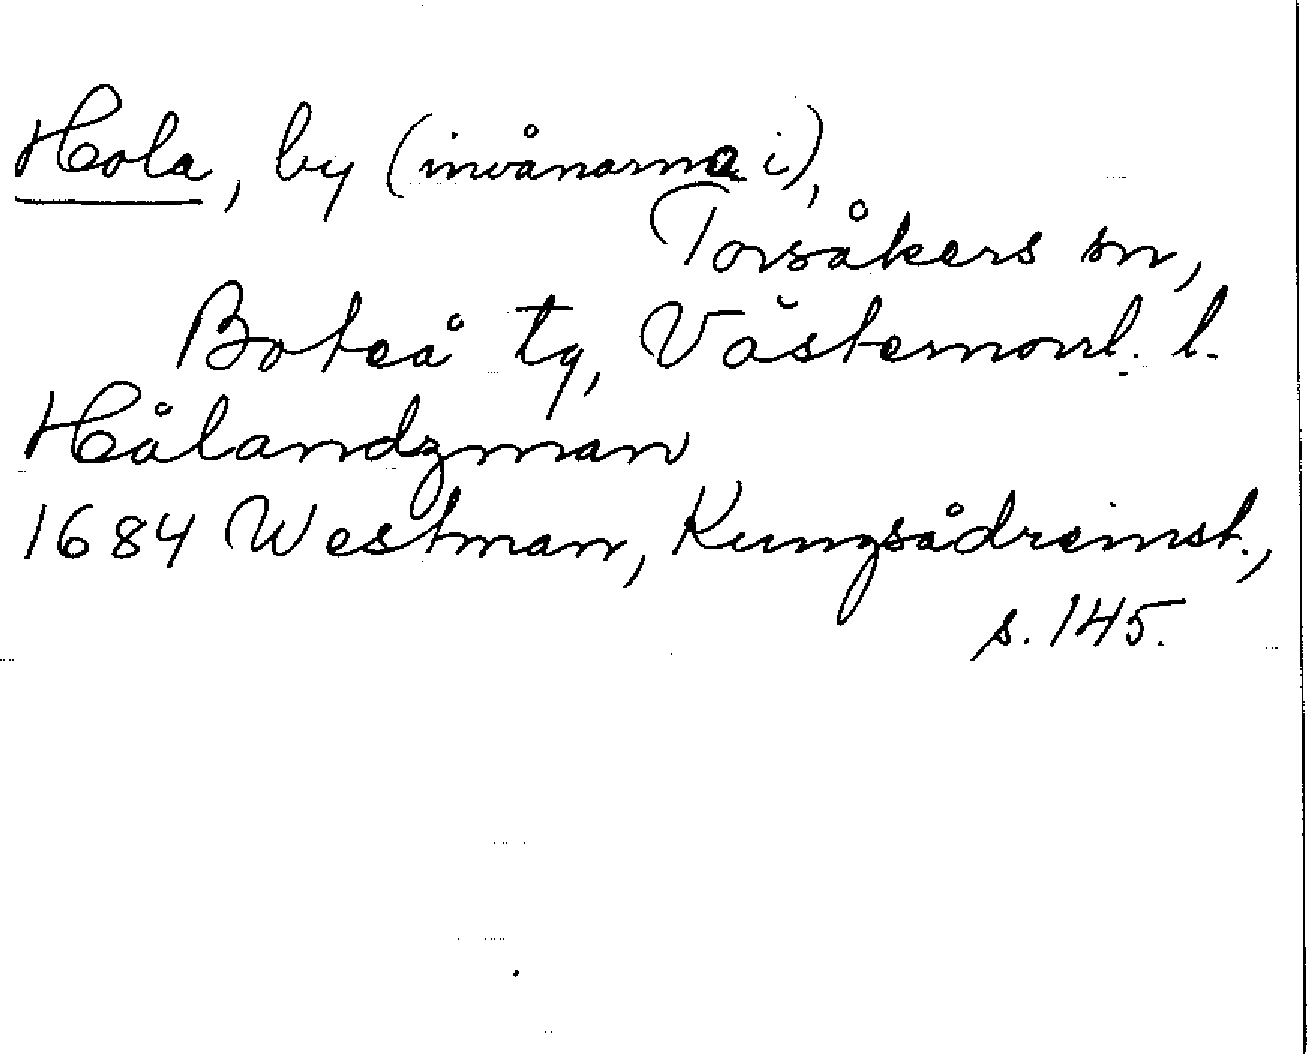 Hola, by (invånarna i),
Torsåkers sn,
Boteå tg, Västernorrl. l.
Hålandzman
1684 Westman, Kungsådreinst.,
s. 145.